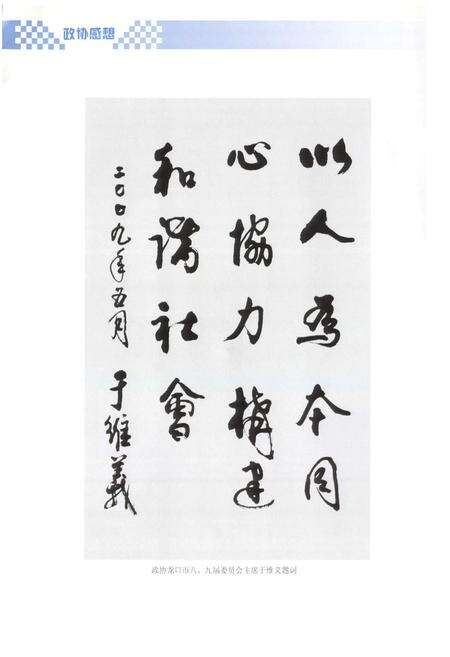 政协感想
以人為本同
心協力構建
和諧社會
二〇〇九年五月 于維義
政协龙口市八、九届委员会主席于维义题词